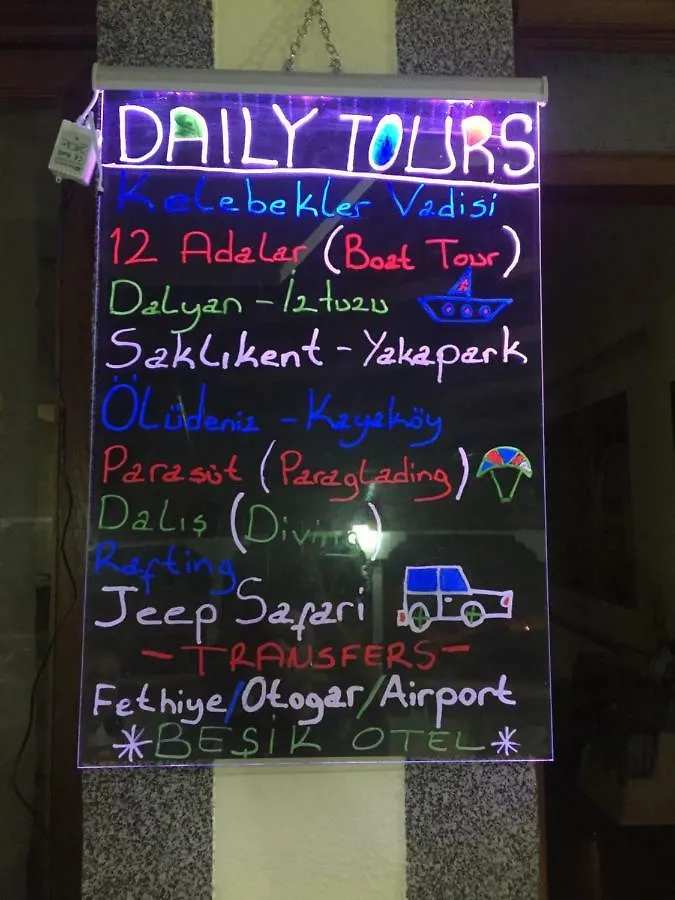 DAILY TOURS
Kelebekler Vadisi
12 Adalar (Boat Tour)
Dalyan - İztuzu
Saklıkent - Yakapark
Ölüdeniz - Kayaköy
Paraşüt (Paraglading)
Dalış (Diving)
Rafting
Jeep Safari
- TRANSFERS -
Fethiye/Otogar/Airport
*BEŞİK OTEL*